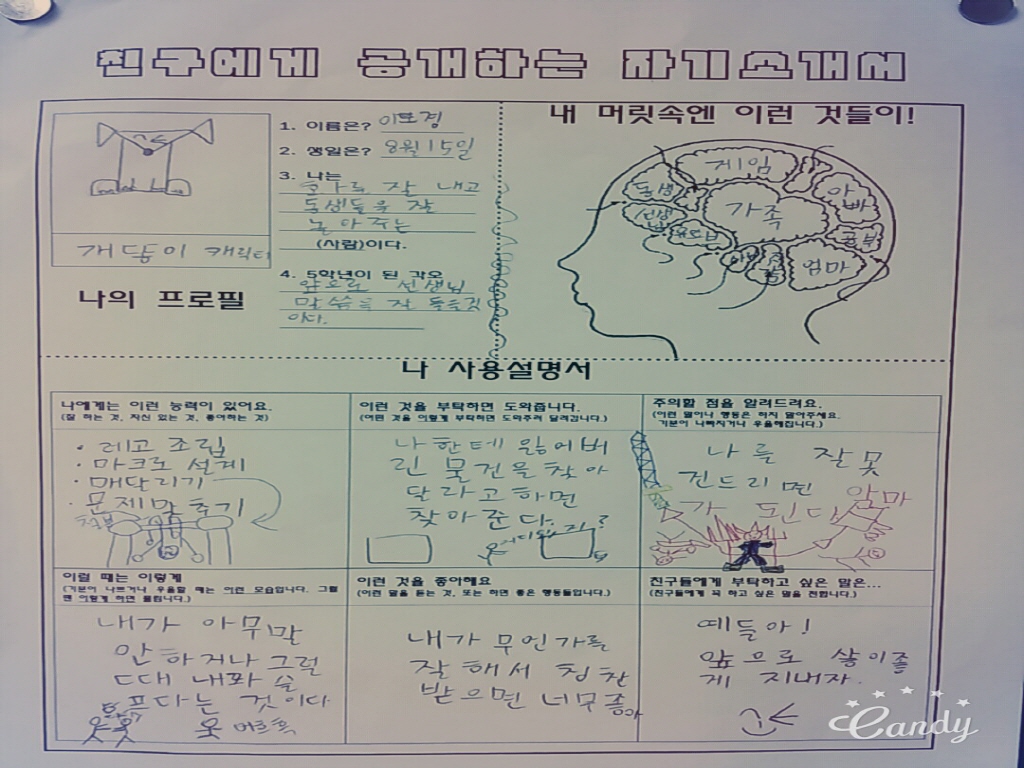 친구에게 공개하는 자기소개서
개똥이 캐릭터
나의 프로필
1. 이름은? 이도경
2. 생일은? 8월 15일
3. 나는
화를 잘 내고
동생들을 잘
놀아주는
(사람)이다.
4. 5학년이 된 각오
앞으로 선생님
말씀을 잘 들을것
이다.
내 머릿속엔 이런 것들이!
게임
동생
아빠
가족
선생
공부
엄마
나 사용설명서
나에게는 이런 능력이 있어요.
(잘 하는 것, 자신 있는 것, 좋아하는 것)
· 레고 조립
· 마크로 설계
· 매달리기
· 문제맞추기
철봉
이런 것을 부탁하면 도와줍니다.
(어떤 것을 어떻게 부탁하면 도와주러 달려갑니다.)
나한테 잃어버
린 물건을 찾아
달라고하면
찾아준다.
어디있지?
주의할 점을 알려드려요.
(이런 말이나 행동은 하지 말아주세요.
기분이 나빠지거나 우울해집니다.)
나를 잘못
건드리면
악마
가 된다
이럴 때는 이렇게
(기분이 나쁘거나 우울할 때는 이런 모습입니다. 그럴
땐 이렇게 하면 풀립니다.)
내가 아무말
안하거나 그럴
때 내봐 슬
프다는 것이다
이런 것을 좋아해요
(이런 말을 듣는 것, 또는 하면 좋은 행동들입니다.)
내가 무언가를
잘해서 칭찬
받으면 너무좋아
친구들에게 부탁하고 싶은 말은...
(친구들에게 꼭 하고 싶은 말을 전합니다.)
얘들아!
앞으로 사이좋
게 지내자.
Candy